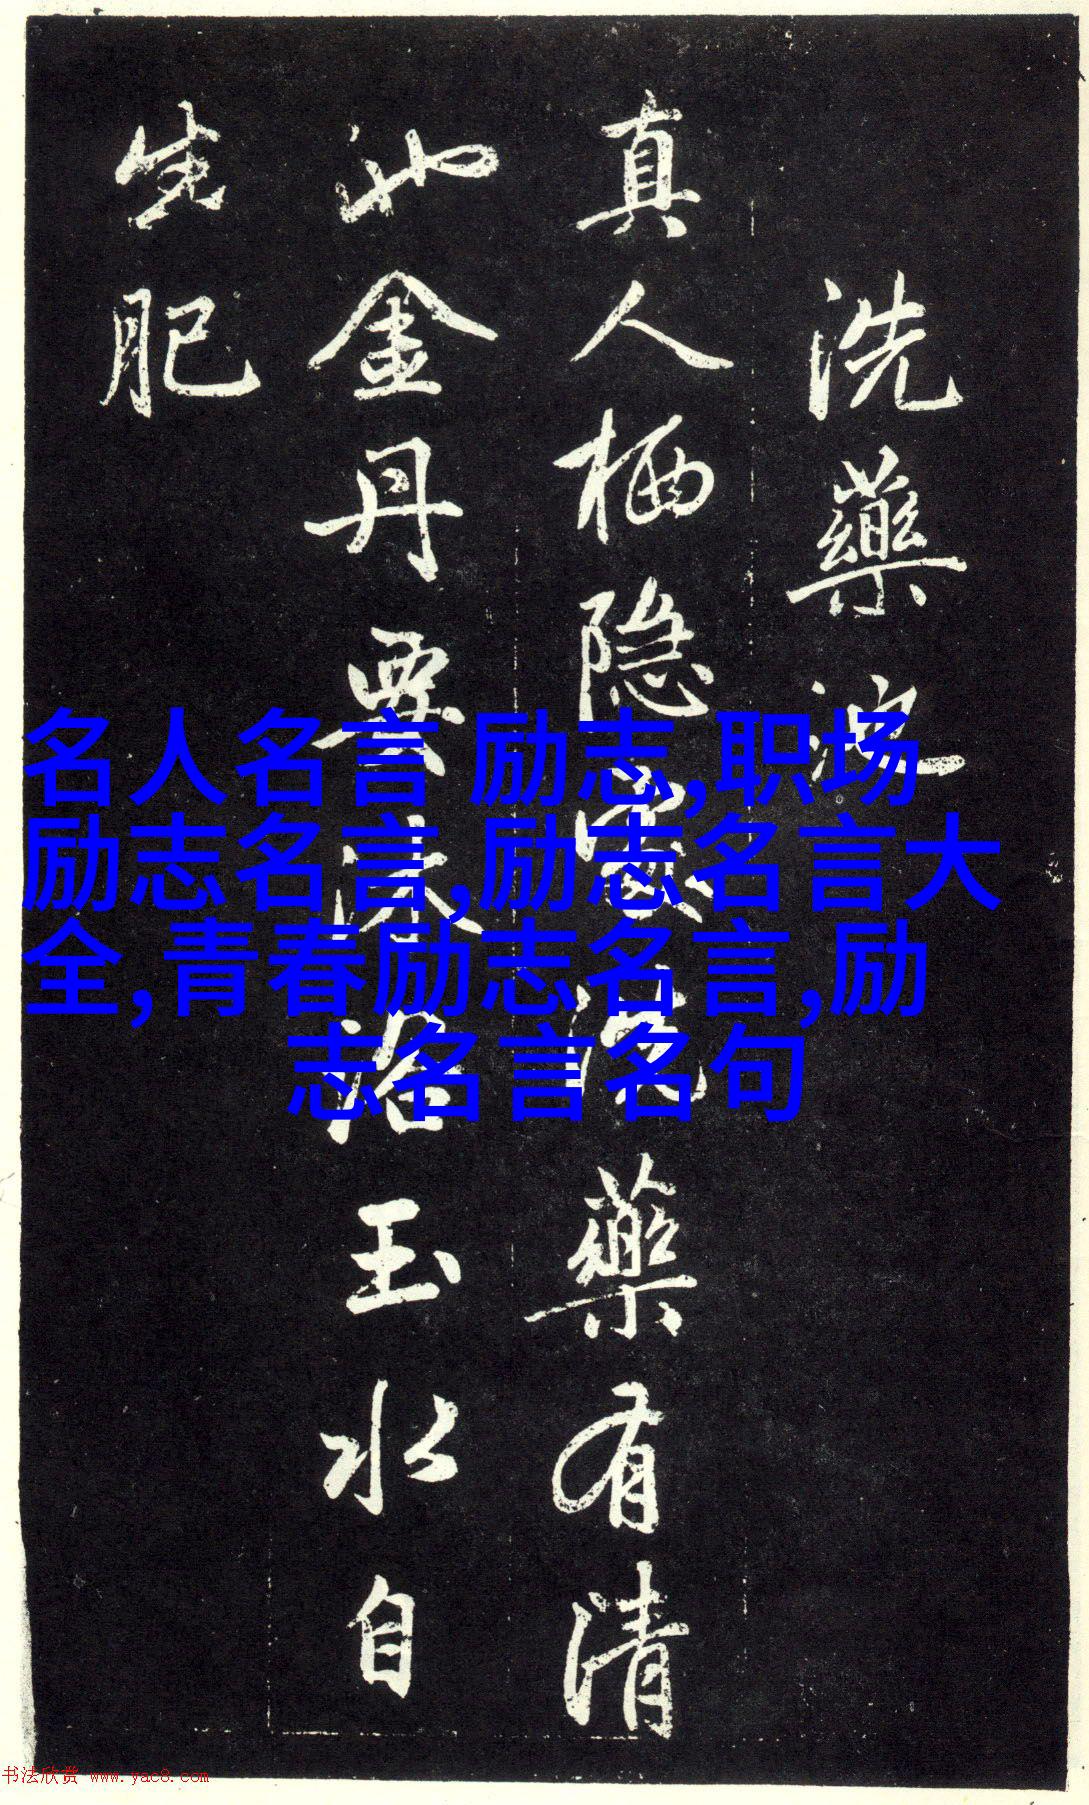 洗藥池
真人栖隐洗藥有清
池金丹要沐浴玉水自
生肥
名人名言 励志,职场
励志名言,励志名言大
全,青春励志名言,励
志名言名句
书法欣赏 www.yac8.com